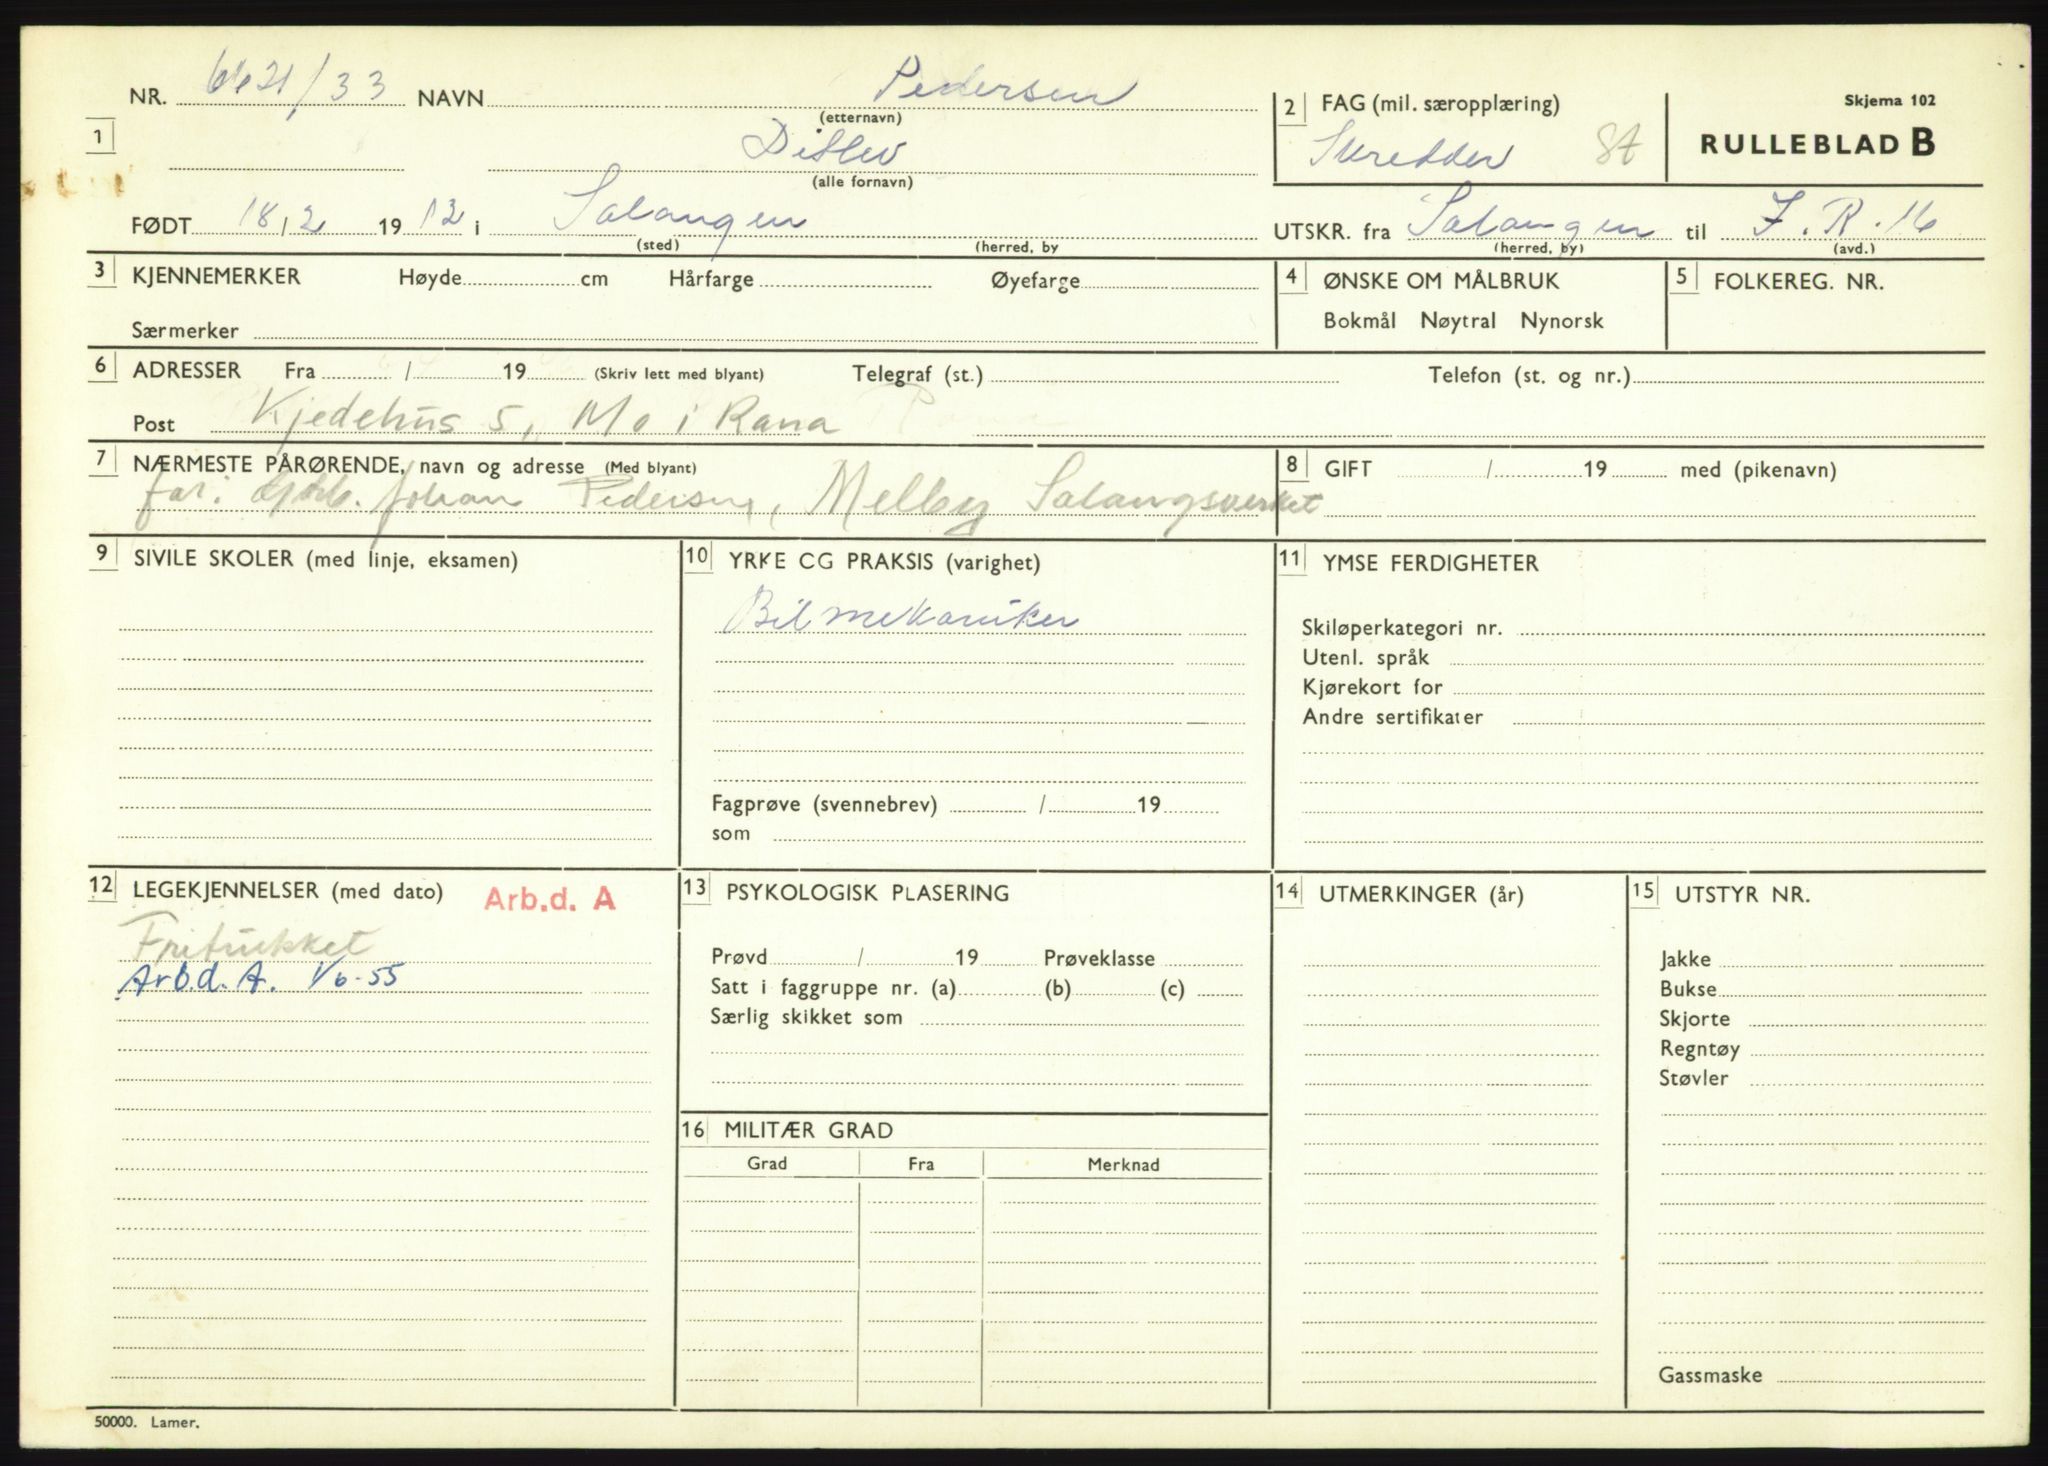 NR. 6621/33 NAVN Pedersen
(etternavn)
1
Ditlev
(alle fornavn)
FØDT 18/2 1912 i Salangen
(sted) (herred, by
2 FAG (mil. særopplæring)
Skredder St
Skjema 102
RULLEBLAD B
UTSKR. fra Salangen til I.R.16
(herred, by) (avd.)
3 KJENNEMERKER Høyde cm Hårfarge Øyefarge
Særmerker
4 ØNSKE OM MÅLBRUK
Bokmål Nøytral Nynorsk
5 FOLKEREG. NR.
6 ADRESSER Fra / 19 (Skriv lett med blyant) Telegraf (st.) Telefon (st. og nr.)
Post Kjedehus 5, Mo i Rana
7 NÆRMESTE PÅRØRENDE, navn og adresse (Med blyant)
far: Johan Pedersen, Melby Salangsverket
8 GIFT / 19 med (pikenavn)
9 SIVILE SKOLER (med linje, eksamen)
10 YRKE CG PRAKSIS (varighet)
Bilmekaniker
Fagprøve (svennebrev) / 19
som
11 YMSE FERDIGHETER
Skiløperkategori nr.
Utenl. språk
Kjørekort for
Andre sertifikater
12 LEGEKJENNELSER (med dato) Arb.d. A
Fritukket
Arb.d.A. 1/6-55
13 PSYKOLOGISK PLASERING
Prøvd / 19 Prøveklasse
Satt i faggruppe nr. (a) (b) (c)
Særlig skikket som
14 UTMERKINGER (år)
15 UTSTYR NR.
Jakke
Bukse
Skjorte
Regntøy
Støvler
Gassmaske
16 MILITÆR GRAD
Grad Fra Merknad
50000. Lamer.